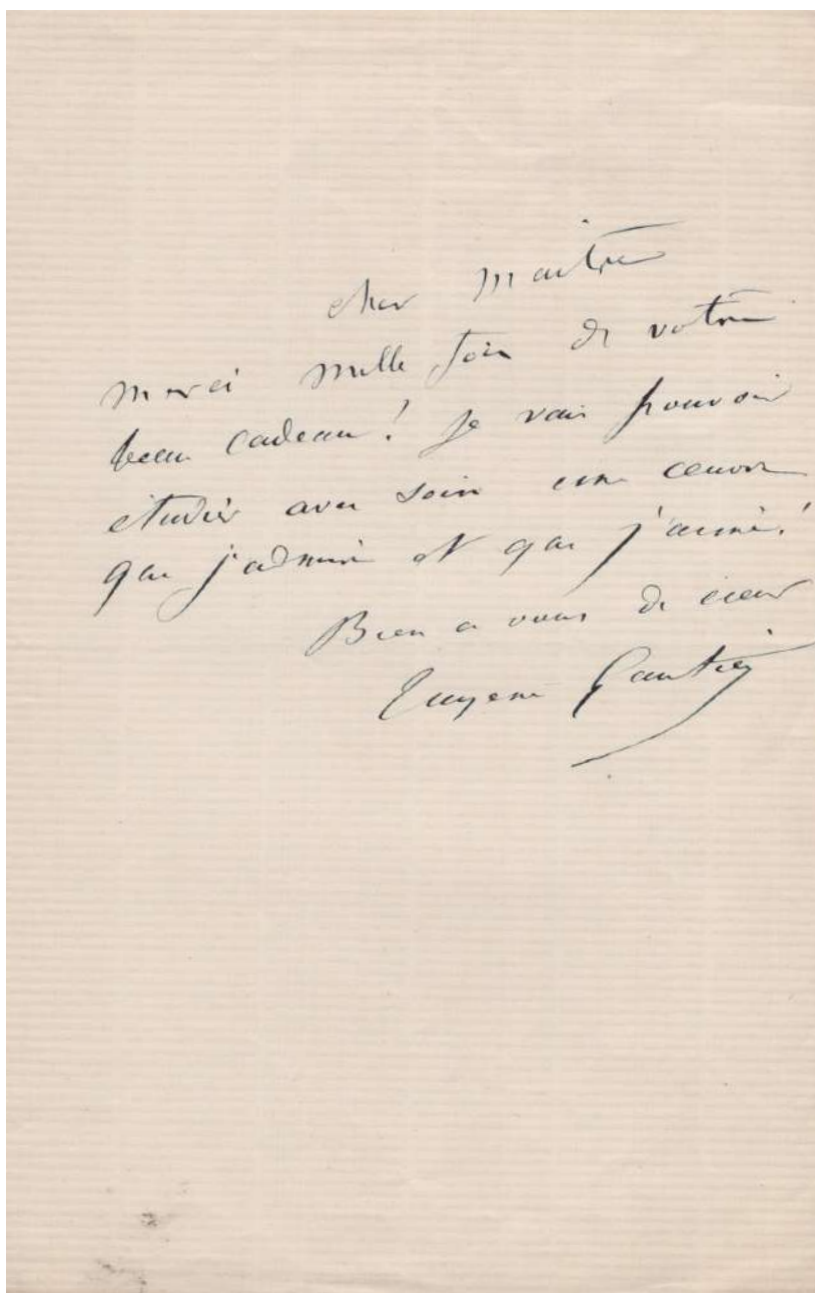 cher maitre
merci mille fois de votre
beau cadeau! je vais pouvoir
étudier avec soin une œuvre
que j'admire et que j'aime!
Bien a vous de cœur
Eugene Gautier